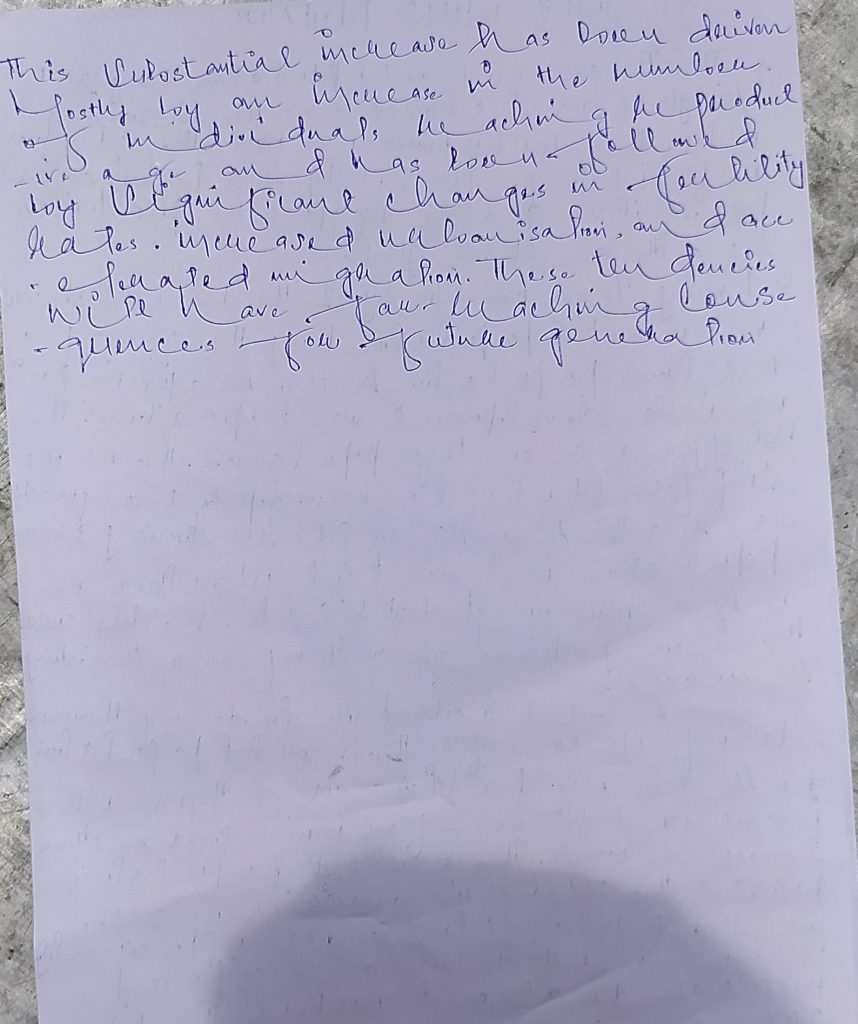 This substantial increase has been driven
Mostly by an increase in the number
of individuals reaching reproduct
-ive age and has been followed
by significant changes in fertility
rates. increased urbanisation, and acc
-elerated migration. These tendencies
will have far-reaching conse
-quences for future generation